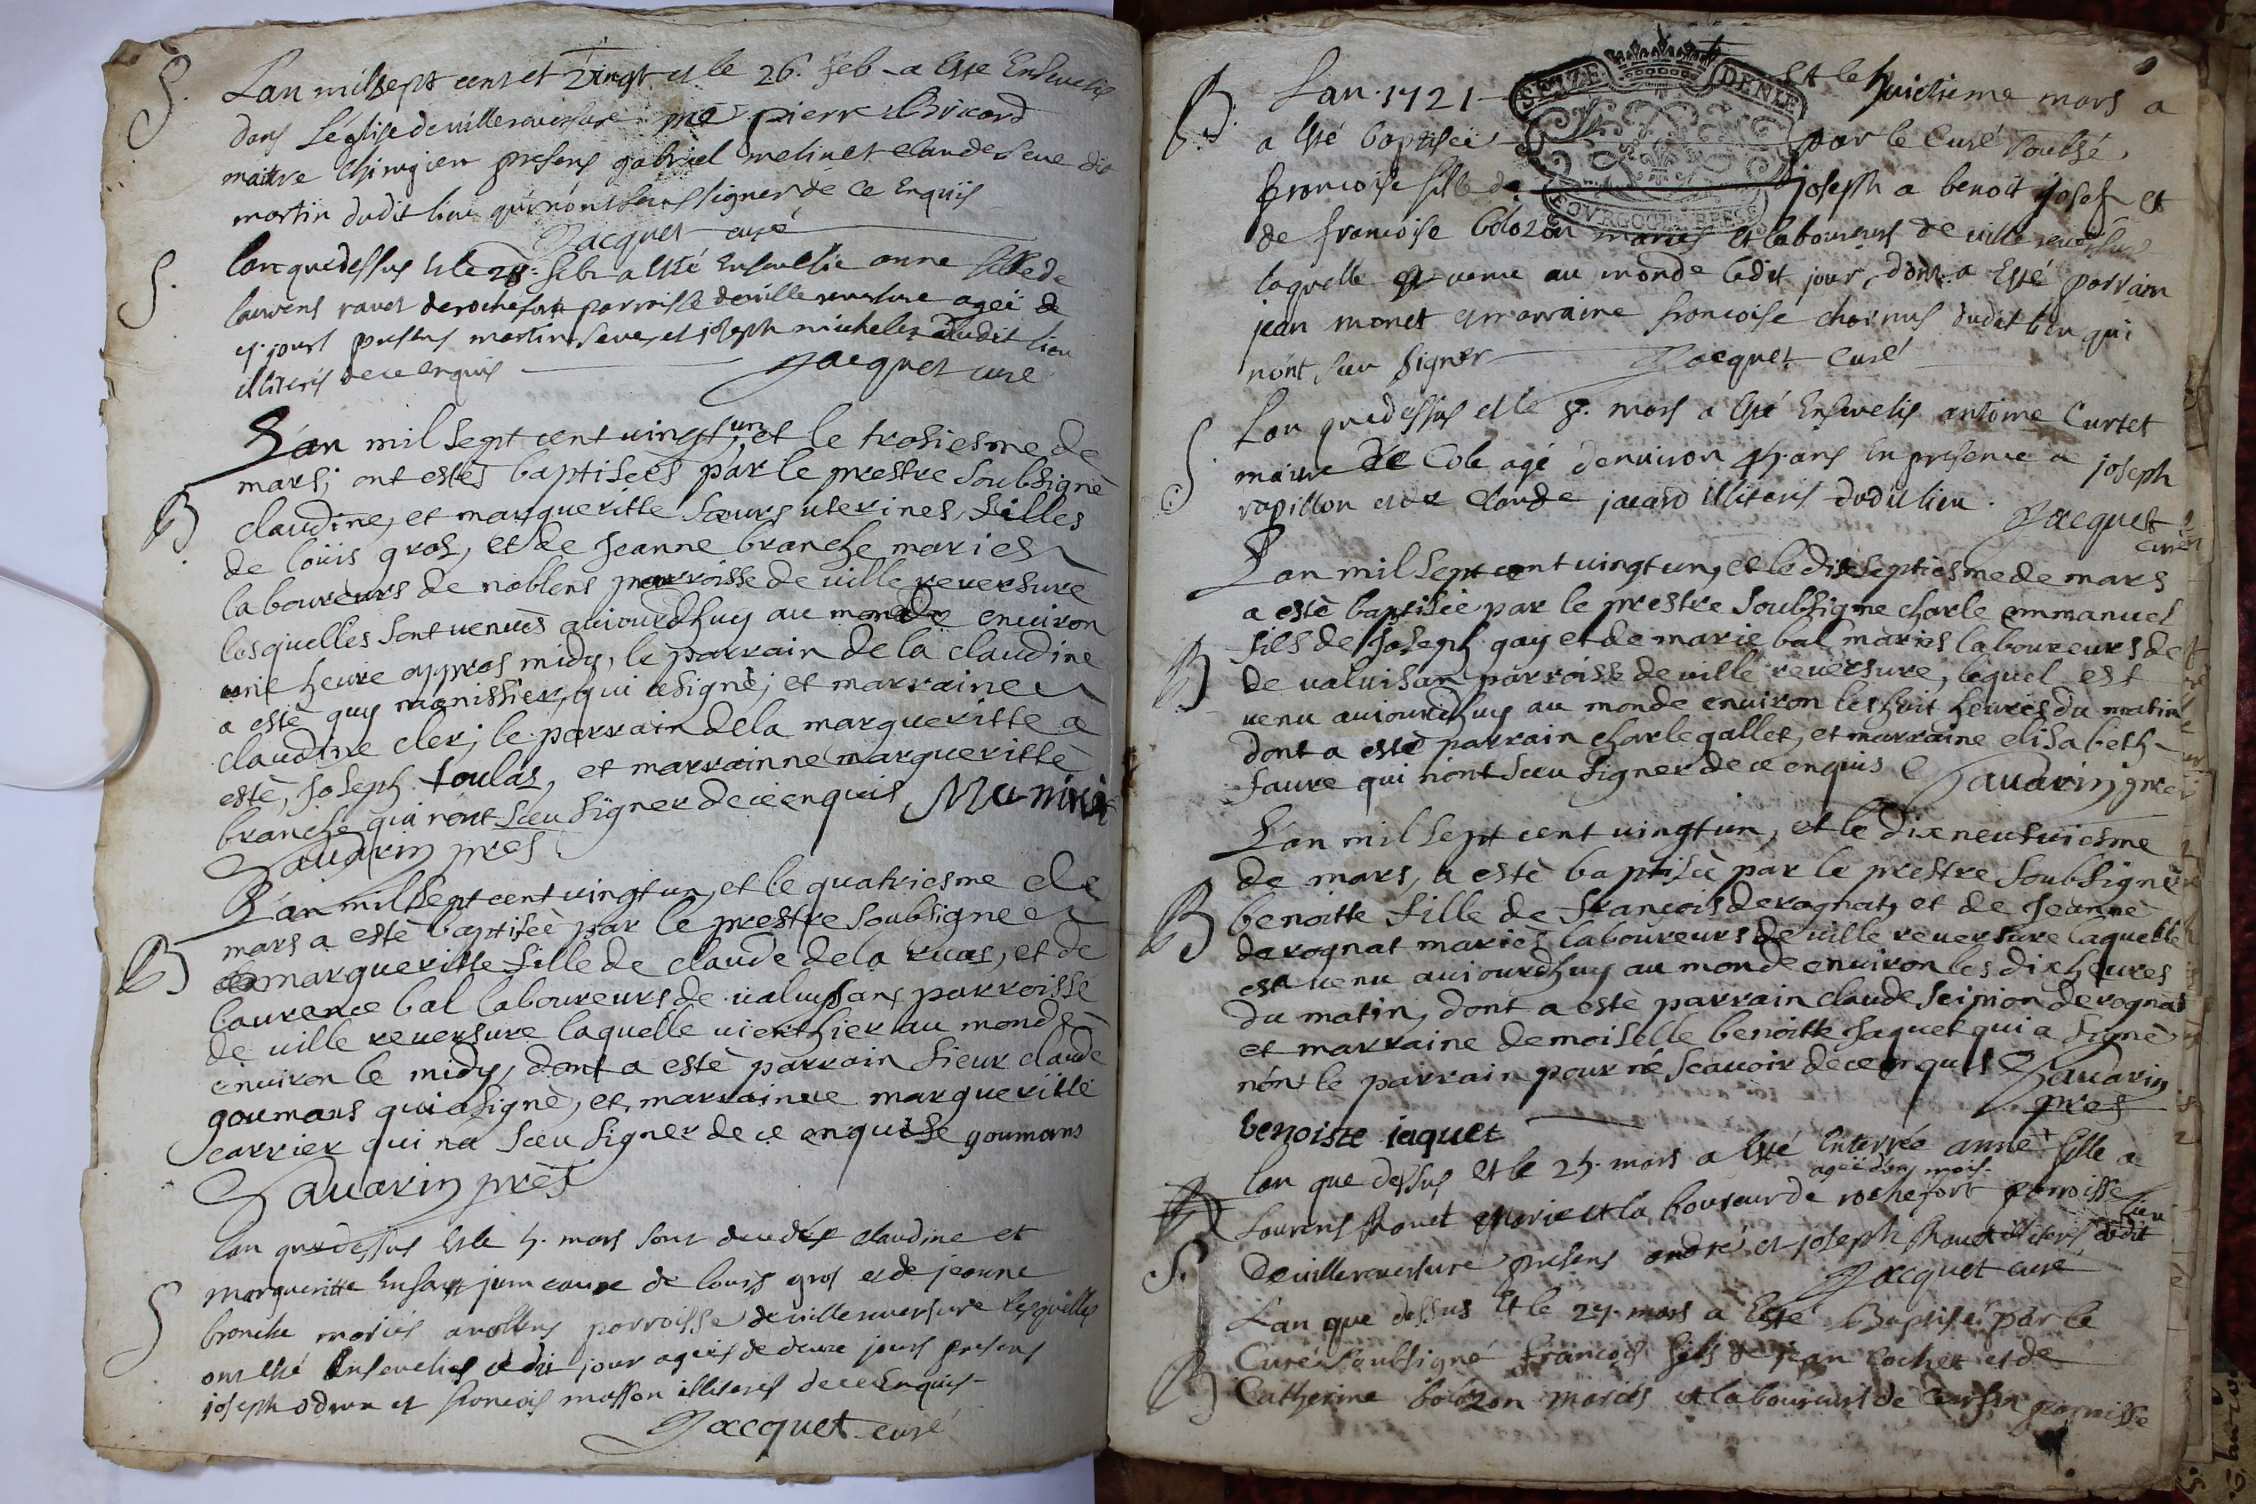 S. Lan mil sept cent et vingt et le 26. feb. a esté ensevelis
dans Léglise de villereversure me pierre Bricard
maitre chirugien presens gabriel melinet claude seve dit
martin dudit lieu qui nont sceus signer de ce enquis
Jacquet curé
S. Lan que dessus et le 28. feb. a esté ensevelie anne fille de
laurens ravet de rochefort parroisse de villereversure ageé de
jours presens martin seve, et joseph michelet dudit lieu
illiterés de ce enquis Jacquet curé
L'an mil sept cent vingt un, et le troisiesme de
mars; ont estés baptisées par le prestre soubsigné
B claudine, et margueritte soeurs uterines, filles
de loüis gros, et de Jeanne branche mariés
laboureurs de noblens parroisse de ville reversure
lesquelles sont venues auiourdhuy au monde environ
une heure appres midy, le parrain de la claudine
a esté guy manissier, qui a signé; et marraine
claudine cler; le parrain de la margueritte a
esté, Joseph toulas, et marrainne margueritte
branche qui nont sceu signer de ce enquis
Savarin pres
L'an mil sept cent vingt un, et le quatriesme de
mars a esté baptiseé par le prestre soubsigné
B margueritte fille de claude de la ruas, et de
laurence bal laboureurs de valuissans parroisse
de ville reversure laquelle vient hier au monde
environ le midy, dont a esté parrain sieur claude
goumans qui a signé, et marrainne margueritte
carrier qui na sceu signer de ce enquise goumans
Savarin pres
Lan que dessus et le 5. mars sont decedés claudine et
margueritte enfans jumeaux de louis gros et de jeanne
S branche mariés a noblens parroisse de villereversure lesquelles
ont esté ensevelies ledit jour ageés de deux jours presens
joseph odrux et francois masson illiterés de ce enquis
Jacquet curé
B. Lan 1721 et le huictieme mars a
a esté baptiseé par le curé soubsé,
francoise fille de joseph a benoit josef et
SEIZE DENIE
BOVRGOGNE BRESSE
de francoise bolozon mariés et laboureurs de villereversure
laquelle est venue au monde ledit jour, dont a esté parrain
jean monet et marraine francoise charnus dudit lieu qui
nont sceu signer Jacquet curé
S. Lan que dessus et le 8. mars a esté ensevelis antoine Curtet
de Cole agé denviron ans en presence a joseph
rapillon et de claude jacard illiterés dudit lieu. Jacquet
curé
L'an mil sept cent vingt un, et le dix septiesme de mars
a esté baptisée par le prestre soubsigné charle emmanuel
fils de Joseph gay et de marie bal mariés laboureurs de
B de valuisan parroisse de ville reversure, lequel est
venu auiourdhuy au monde environ les huit heures du matin
dont a esté parrain charle gallet, et marraine elisabeth
faure qui nont sceu signer de ce enquis Savarin pres
L'an mil sept cent vingt un, et le dix neufviesme
de mars, a esté baptisée par le prestre soubsigné
B benoitte fille de francois derognat, et de Jeanne
derognat mariés laboureurs de ville reversure laquelle
est venu auiourdhuy au monde environ les dix heures
du matin, dont a esté parrain claude scipion derognat
et marraine demoiselle benoitte Jaquet qui a signé
non le parrain pour ne scavoir de ce enquis Savarin
pres
benoiste iaquet
lan que dessus et le 25. mars a esté enterrée anne fille a
ageé dun mois.
Laurens Ravet marié et laboureur de rochefort parroisse
S. de villereversure presens andre et joseph Ravet illiterés dudit lieu
Jacquet curé
L'an que dessus et le 27. mars a esté Baptisé par le
B Curé soubsigné francois fils de jean cochet et de
Catherine bolozon mariés et laboureurs de parroisse